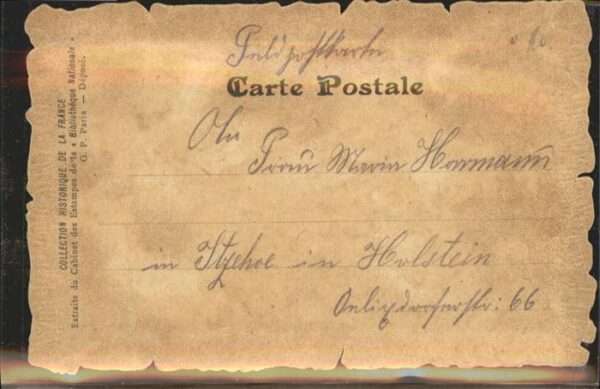 Feldpostkarte
Carte Postale
An
Frau Maria Hormann
in Itzehoe in Holstein
66
COLLECTION HISTORIQUE DE LA FRANCE
Extraits du Cabinet des Estampes de la « Bibliothèque Nationale »
G. P. Paris — Déposé.